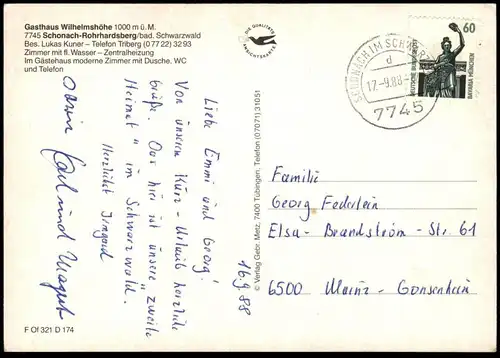 Gasthaus Wilhelmshöhe 1000 m ü. M.
7745 Schonach-Rohrhardsberg/bad. Schwarzwald
Bes. Lukas Kuner – Telefon Triberg (0 77 22) 32 93
Zimmer mit fl. Wasser – Zentralheizung
Im Gästehaus moderne Zimmer mit Dusche, WC
und Telefon
DIE QUALITÄTS
ANSICHTSKARTE
SCHONACH IM SCHWARZW
d
17.-9.88-
7745
60
DEUTSCHE BUNDESPOST
BAVARIA MÜNCHEN
16.9.88
Liebe Emmi und Georg!
Von unserem Kurz-Urlaub herzliche
Grüße. Das hier ist unsere „zweite
Heimat" im Schwarzwald.
Herzlichst Irmgard
Karl und Margret
© Verlag Gebr. Metz, 7400 Tübingen, Telefon (07071) 31051
Familie
Georg Federlein
Elsa-Brandström-Str. 61
6500 Mainz-Gonsenheim
F Of 321 D 174